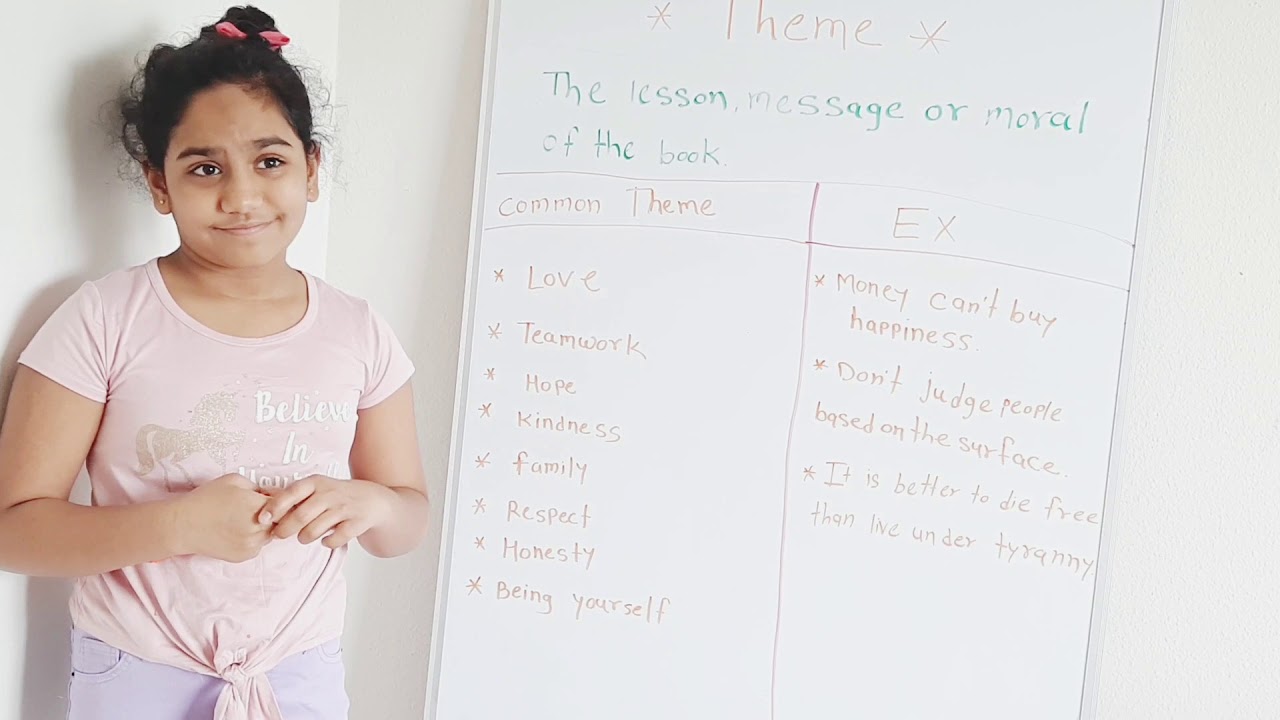 * Theme *
The lesson, message or moral
of the book.
Common Theme
Ex
* Love
* Teamwork
* Hope
* Kindness
* family
* Respect
* Honesty
* Being yourself
* Money can't buy
happiness.
* Don't judge people
based on the surface.
* It is better to die free
than live under tyranny.
Believe
In